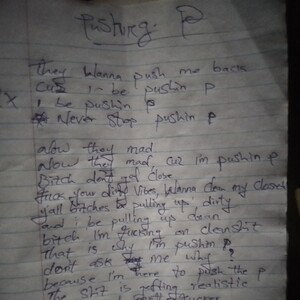 Pushing P
they wanna push me back
cuz i be pushin P
i be pushin P
Never stop pushin P
now they mad
now they mad, cuz I'm pushin P
Bitch don't get close
fuck your dirty vibe, wanna clean my closet
yall bitches pulling up, dirty
and i be pulling up clean
bitch I'm fucking on
That is why I'm pushin P
don't ask me why?
because I'm here to push the P
The shit is getting realistic